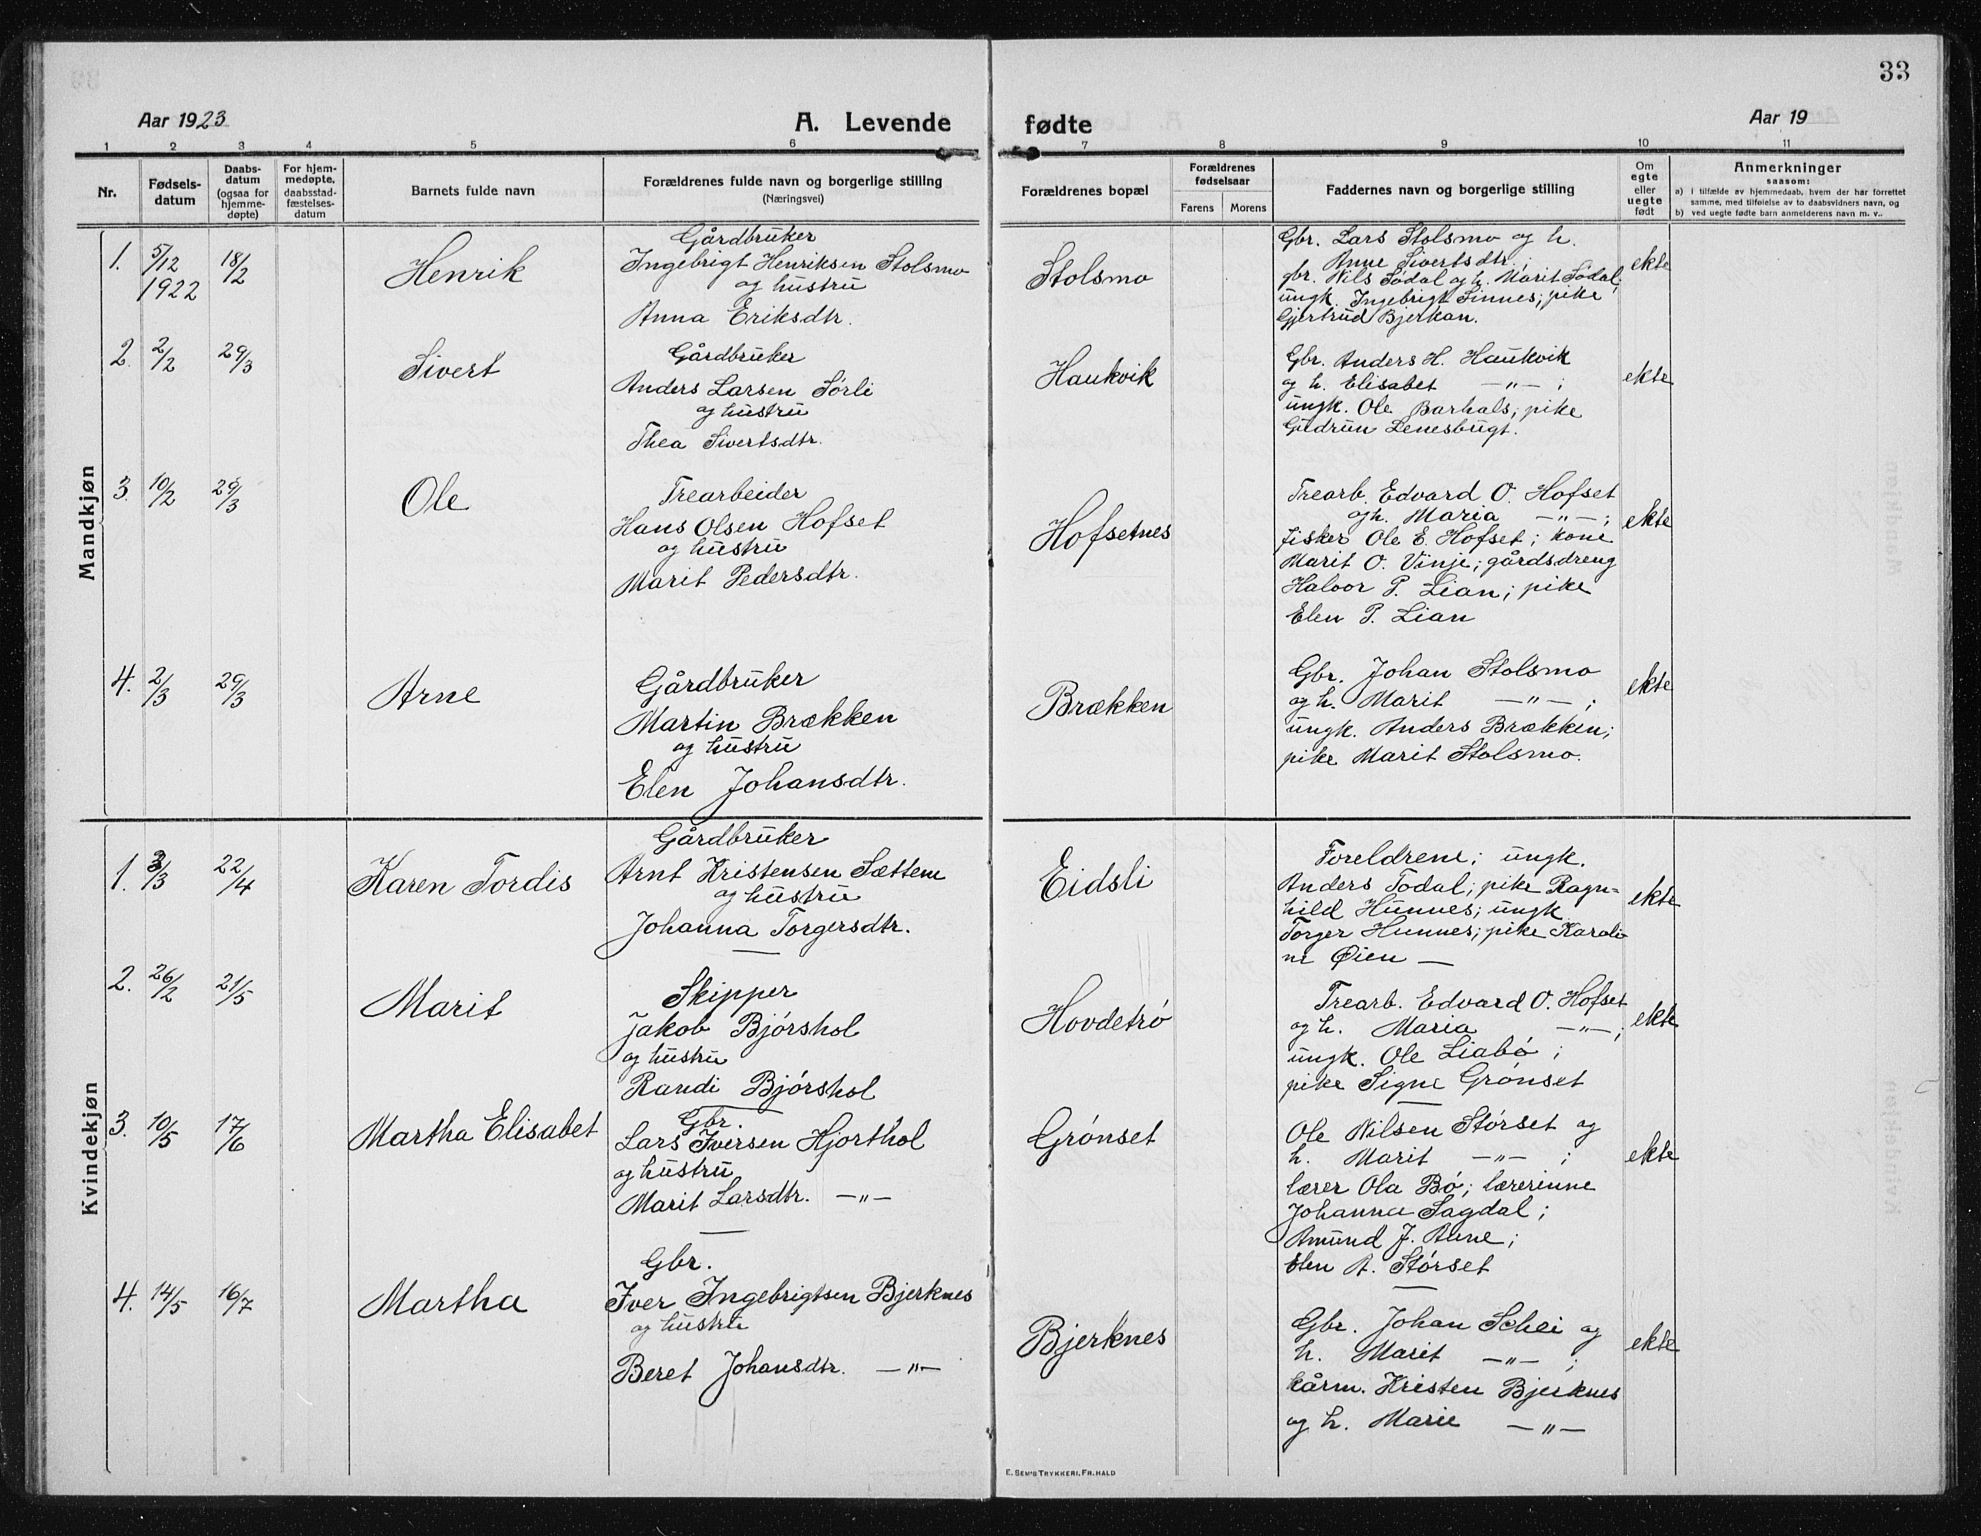 33
Aar 1923
A. Levende
fødte
Aar 19
1 2 3 4 5 6 7 8 9 10 11
Nr.
Fødsels-
datum
Daabs-
datum
(ogsaa for
hjemme-
døpte)
For hjem-
medøpte,
daabsstad-
fæstelses-
datum
Barnets fulde navn
Forældrenes fulde navn og borgerlige stilling
(Næringsvei)
Forældrenes bopæl
Forældrenes
fødselsaar
Farens Morens
Faddernes navn og borgerlige stilling
Om
egte
eller
uegte
født
Anmerkninger
saasom:
a) i tilfælde av hjemmedaab, hvem der har forrettet
samme, med tilføielse av to daabsvidners navn, og
b) ved uegte fødte barn anmelderens navn m. v..
Mandkjøn
1. 5/12 1922 18/2
Henrik
Gårdbruker
Ingebrigt Henriksen Stolsmo
og hustru
Anna Eriksdtr.
Stolsmo
Gbr. Lars Stolsmo og h.
Anne Sivertsdtr.;
gbr. Nils Sødal og h. Marit Sødal;
ungk. Ingebrigt Sinnes; pike
Gjertrud Bjerkan.
ekte
2. 2/2 29/3
Sivert
Gårdbruker
Anders Larsen Sørli
og hustru
Thea Sivertsdtr.
Haukvik
Gbr. Anders H. Haukvik
og h. Elisabet —"—;
ungk. Ole Barhals; pike
Gudrun Lenesbugt.
ekte
3. 10/2 29/3
Ole
Trearbeider
Hans Olsen Hofset
og hustru
Marit Pedersdtr.
Hofsetnes
Trearb. Edvard O. Hofset
og h. Maria —"—;
fisker Ole E. Hofset; kone
Marit O. Vinje; gårdsdreng
Halvor P. Lian; pike
Elen P. Lian
ekte
4. 2/3 29/3
Arne
Gårdbruker
Martin Brækken
og hustru
Elen Johansdtr.
Brækken
Gbr. Johan Stolsmo
og h. Marit —"—;
ungk. Anders Brækken;
pike Marit Stolsmo.
ekte
Kvindekjøn
1. 3/3 22/4
Karen Tordis
Gårdbruker
Arnt Kristensen Sættem
og hustru
Johanna Torgersdtr.
Eidsli
Foreldrene; ungk.
Anders Todal; pike Ragn=
hild Hunnes; ungk
Torger Hunnes; pike Karoli-
ne Øien —
ekte
2. 26/2 21/5
Marit
Skipper
Jakob Bjørshol
og hustru
Randi Bjørshol
Hovdetrø
Trearb. Edvard O. Hofset
og h. Maria —"—;
ungk. Ole Liabø;
pike Signe Grønset
ekte
3. 10/5 17/6
Martha Elisabet
Gbr.
Lars Iversen Hjorthol
og hustru
Marit Larsdtr. —"—
Grønset
Ole Nilsen Størset og
h. Marit —"—;
lærer Ola Bø; lærerinne
Johanna Sagdal;
Amund J. Aune;
Elen A. Størset
ekte
4. 14/5 16/7
Martha
Gbr.
Iver Ingebrigtsen Bjerknes
og hustru
Beret Johansdtr. —"—
Bjerknes
Gbr. Johan Schei og
h. Marit —"—;
kårm. Kristen Bjerknes
og h. Marie —"—
ekte
E. SEM'S TRYKKERI, FR.HALD